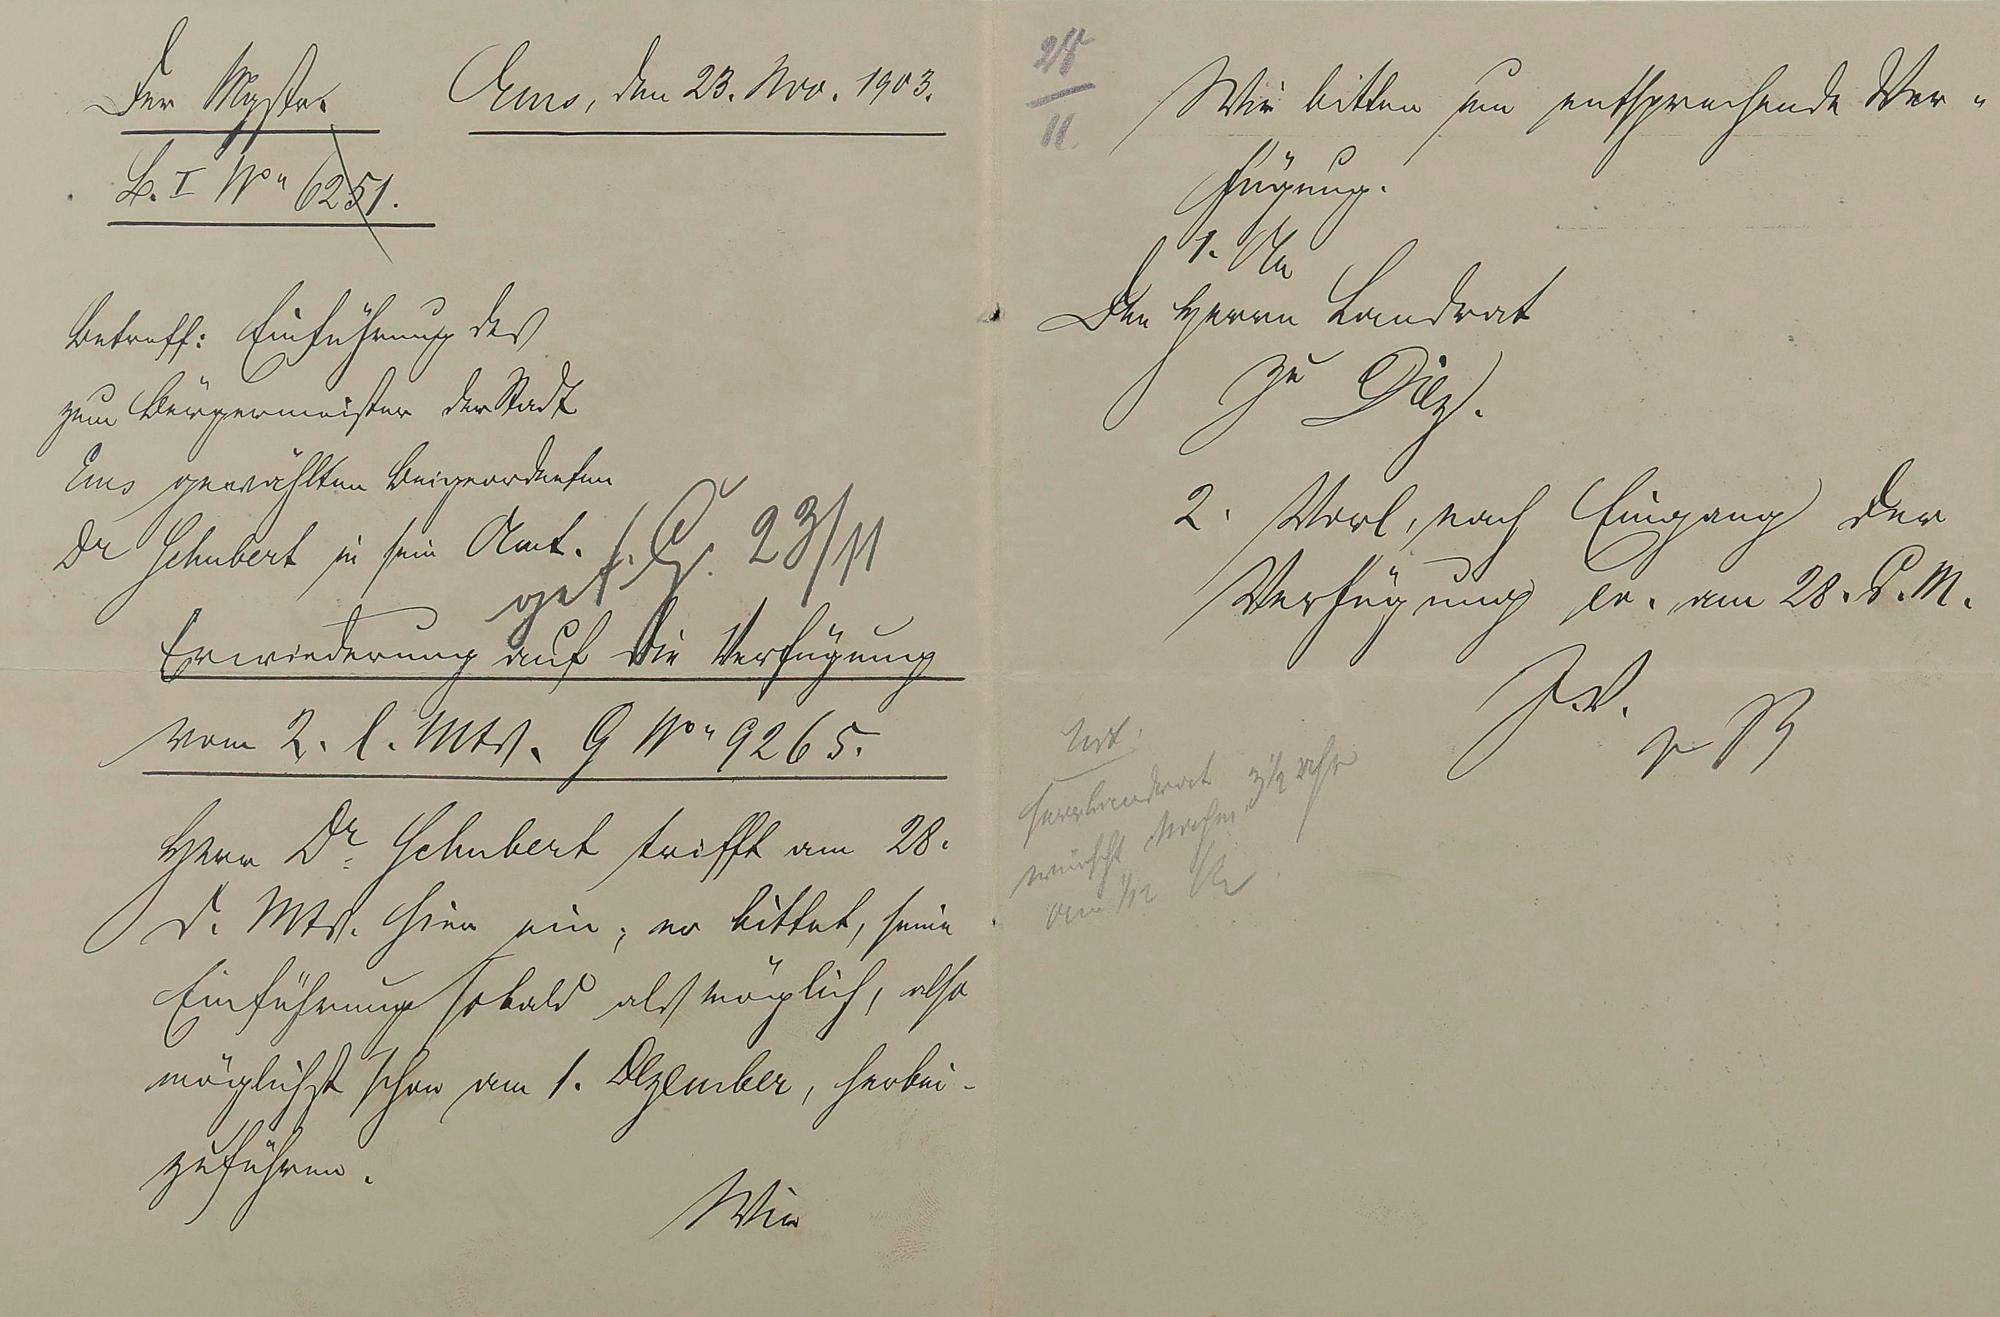 Der Mgstr. Ems, den 23. Nov. 1903.
B. I No 6251.
Betreff: Einführung des
zum Bürgermeister der Stadt
Ems gewählten Beigeordneten
Dr Schubert in sein Amt.
23/11
Erwiederung auf die Verfügung
vom 2. l. Mts. G No 9265.
Herr Dr. Schubert trifft am 28.
d. Mts. hier ein; er bittet, seine
Einführung sobald als möglich, also
möglichst schon am 1. Dezember, herbei-
zuführen.
Wir
28/11.
Wir bitten um entsprechende Ver-
fügung.
1. An
Den Herrn Landrat
zu Diez.
2. Vorl. nach Eingang der
Verfügung ev. am 28. d. M.
J.V.
Herr Landrat 3½ Uhr
wünscht Nachm.
am 1/12